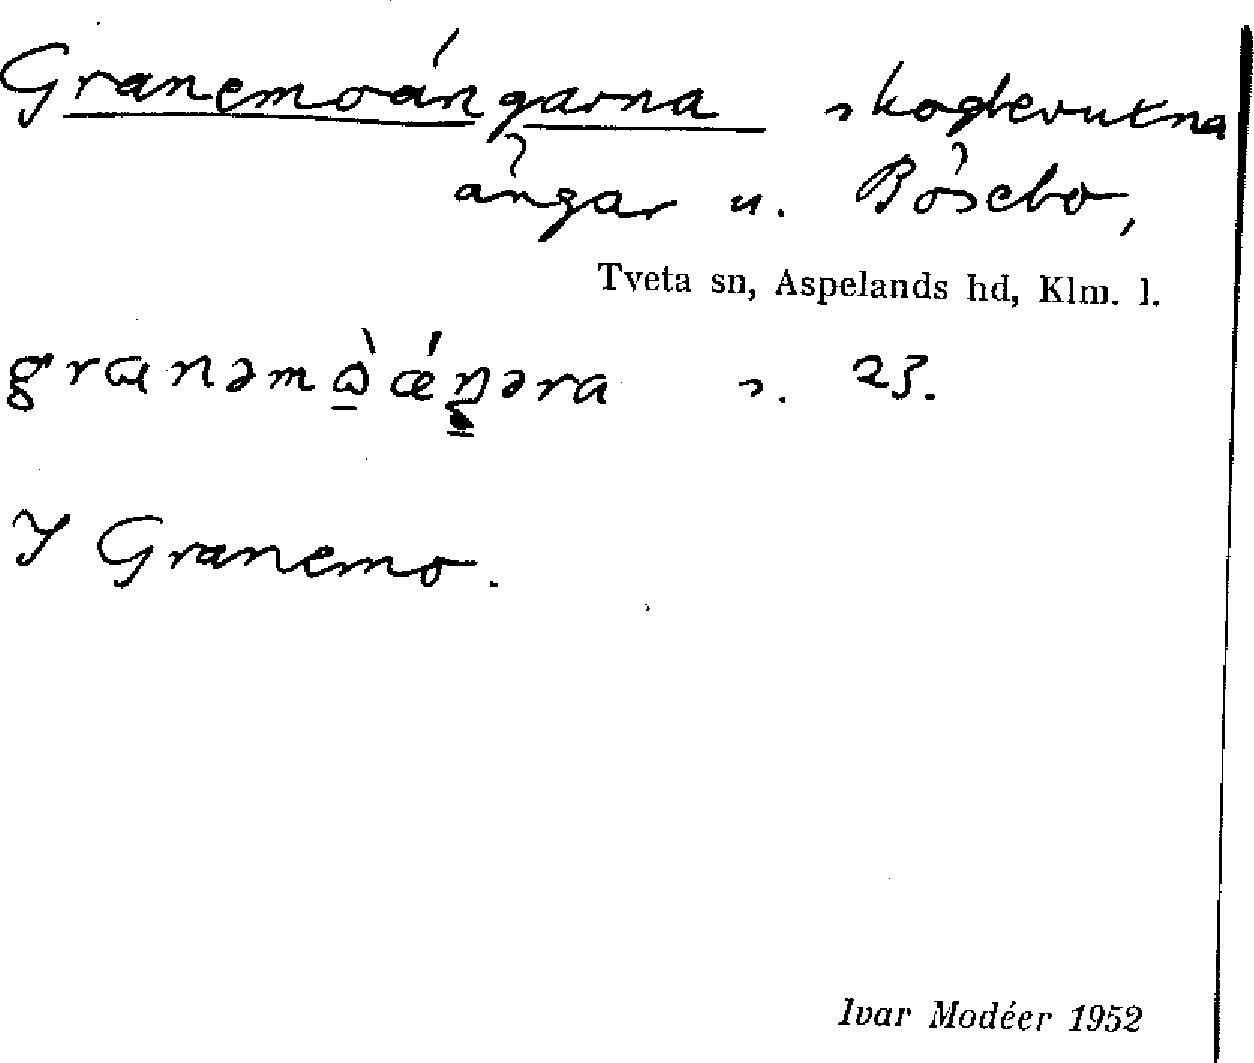 Granemoängarna skogbevuxna
ängar u. Bösebo,
Tveta sn, Aspelands hd, Klm. l.
s. 23.
I Granemo.
Ivar Modéer 1952